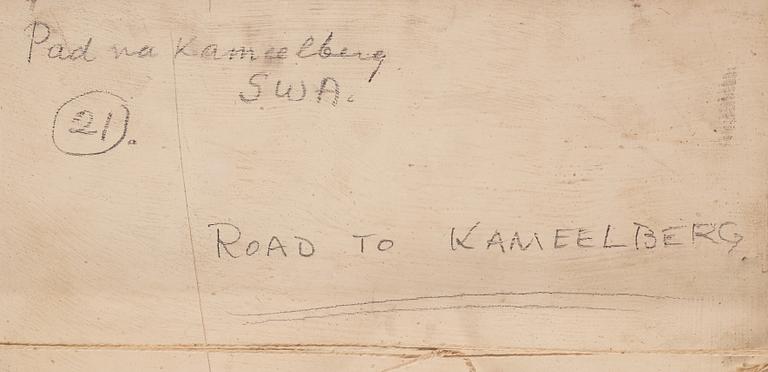 Pad na Kameelberg
SWA.
21.
ROAD TO KAMEELBERG.